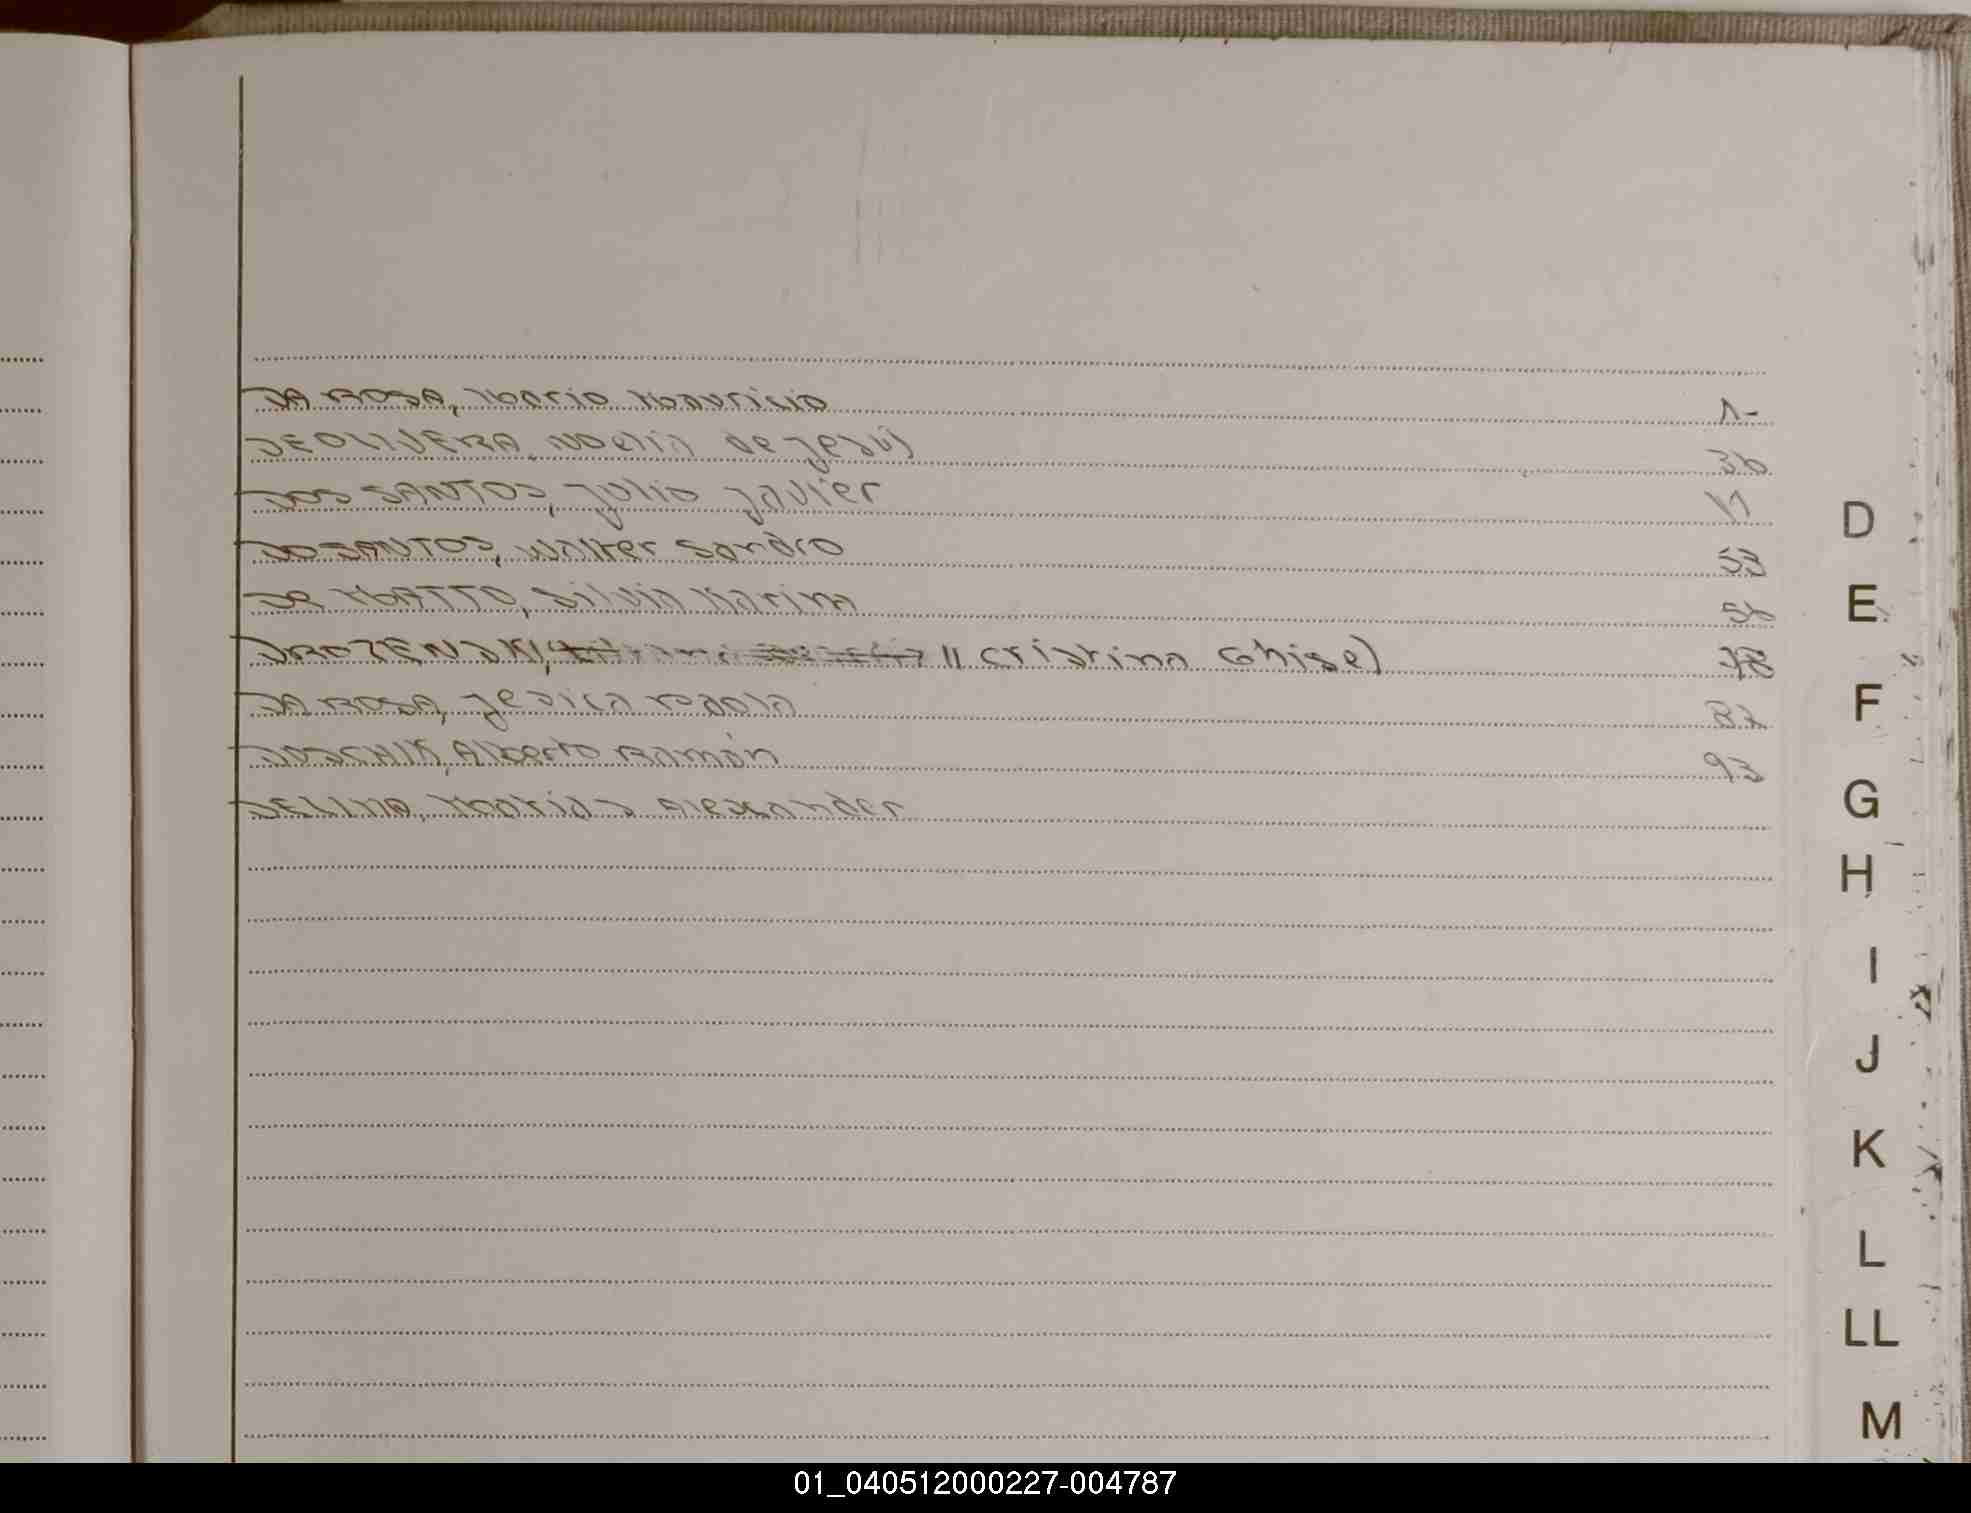 DA ROSA, Mario Mauricio 1-
DE OLIVERA, Noelia de Jesús 36
DOS SANTOS, Julio Javier
DOSANTOS, Walter Sandro 53
DE MATTO, Silvia Karina 56
DROZENSKI, // Cristina Ghisel) 78
DA ROSA, Jesica Paola 87
DOSCHIK, Alberto Ramón 93
DELIMA, Matias Alexander
D
E
F
G
H
I
J
K
L
LL
M
01_040512000227-004787